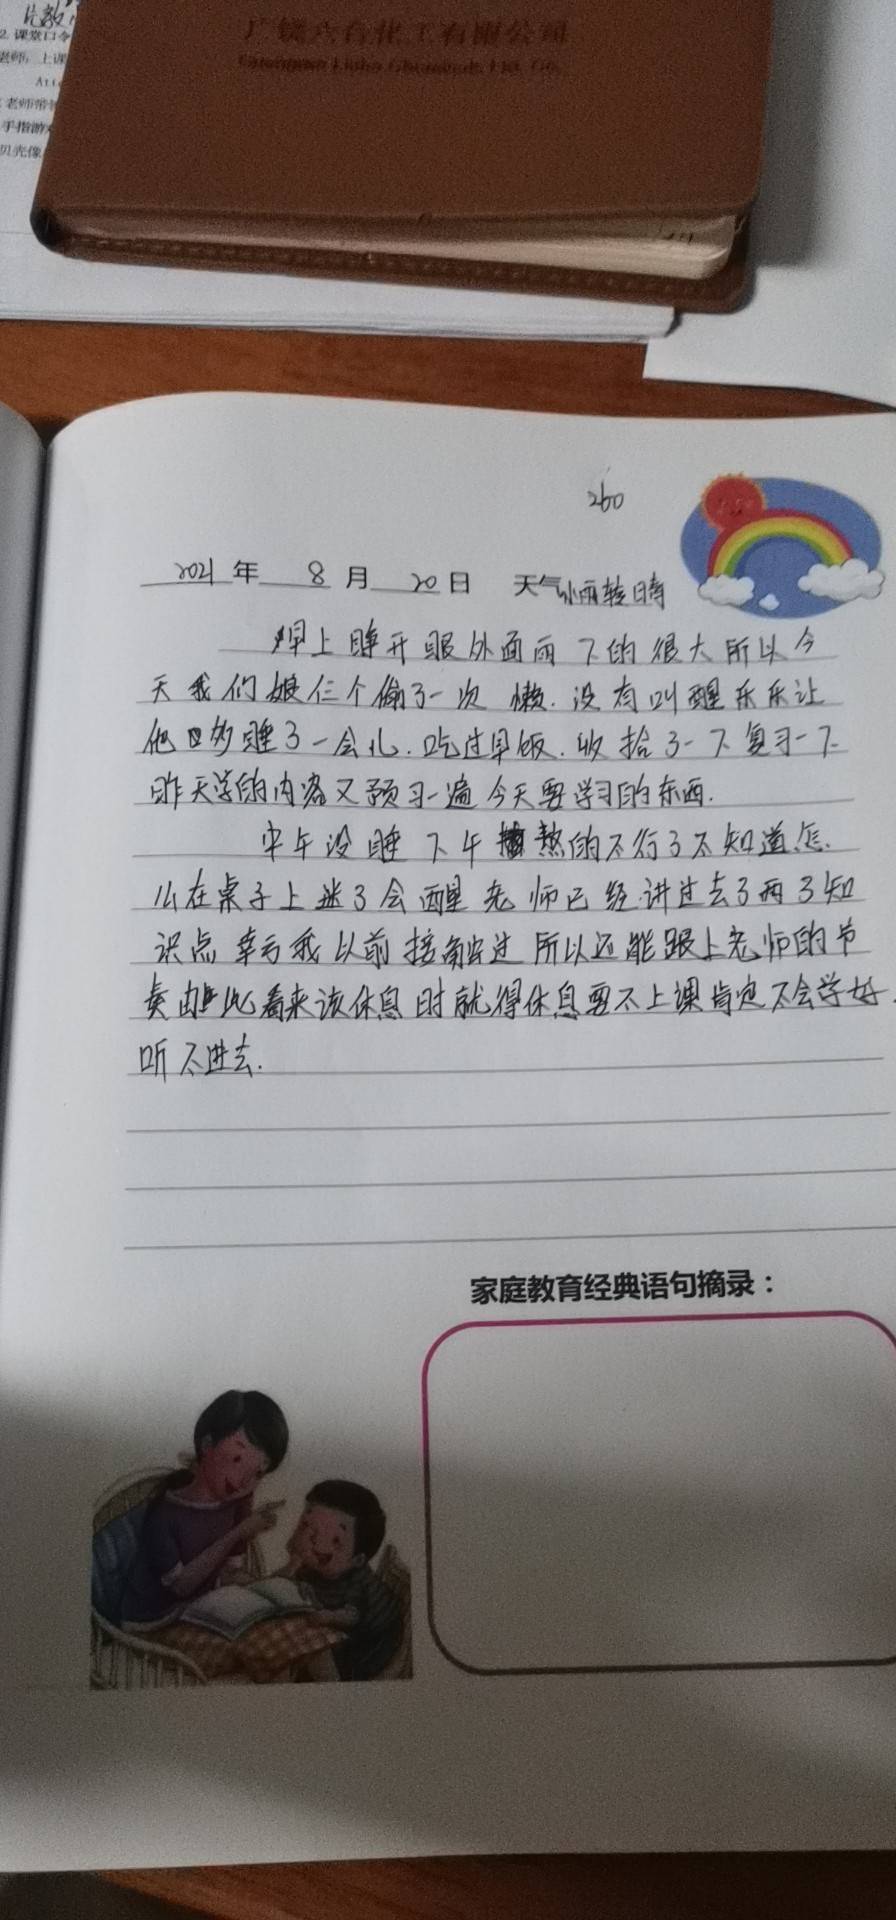 2. 课堂口令
广饶六合化工有限公司
Guangrao Liuhe Chemical Ltd. Co.
手指游
260
2021年 8月 20日 天气 小雨转晴
早上睁开眼外面雨下的很大所以今
天我们娘仨个偷了一次懒.没有叫醒乐乐让
他多睡了一会儿.吃过早饭.收拾了一下复习一下
昨天学的内容又预习一遍今天要学习的东西.
中午没睡下午热的不行了不知道怎.
么在桌子上迷了会醒老师已经讲过去了两3知
识点幸亏我以前接触过所以还能跟上老师的节
奏由此看来该休息时就得休息要不上课肯定不会学好.
听不进去.
家庭教育经典语句摘录：